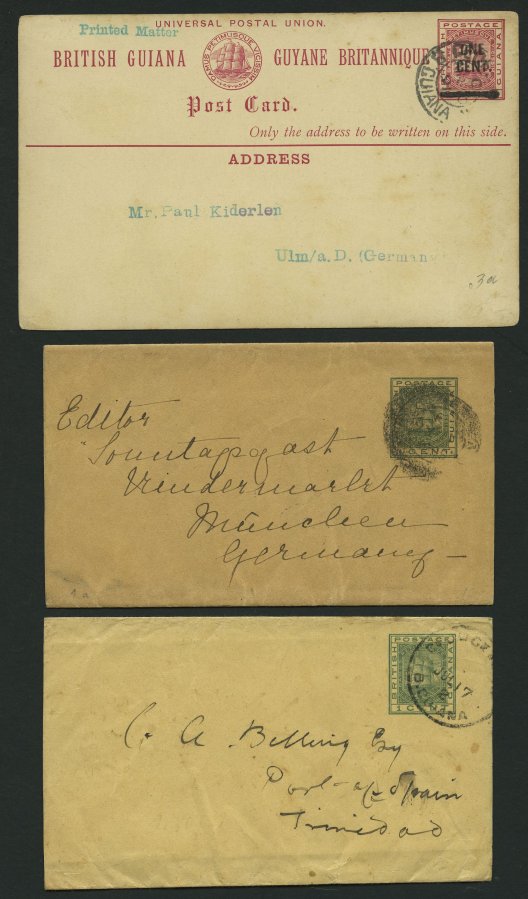 Printed Matter
UNIVERSAL POSTAL UNION.
BRITISH GUIANA
DAMUS PETIMUSQUE VICISSIM
GUYANE BRITANNIQUE
POSTAGE
ONE
CENT
GUIANA
GUIANA
Post Card.
Only the address to be written on this side.
ADDRESS
Mr. Paul Kiderlen
Ulm/a.D. (German
POSTAGE
CENT.
Editor
"Sonntagsgast
Rindermarkt
München
Germany
BRITISH
POSTAGE
GUIANA
1 C
17
C. A. Billing Esq
Port-of-Spain
Trinidad